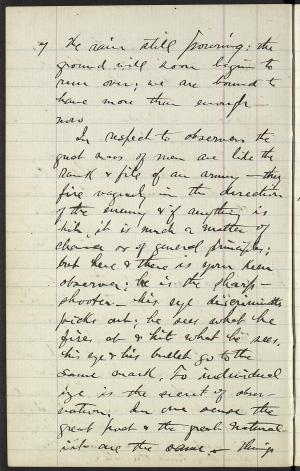 7 The rain still pouring: the
ground will soon begin to
run over; we are bound to
have more than enough
now
In respect to observers the
great mass of men are like the
rank & file of an army - they
fire vaguely in the direction
of the enemy & if anything is
hit, it is much a matter of
chance or of general principles;
but here & there is your keen
observer; he is the sharp-
shooter - his eye discriminates
picks out; he sees what he
fires at & hits what he sees.
his eye & his bullet go to the
same mark. To individual
ize is the secret of obser-
vation. In one sense the
great poet & the great natural
ist are the same - things